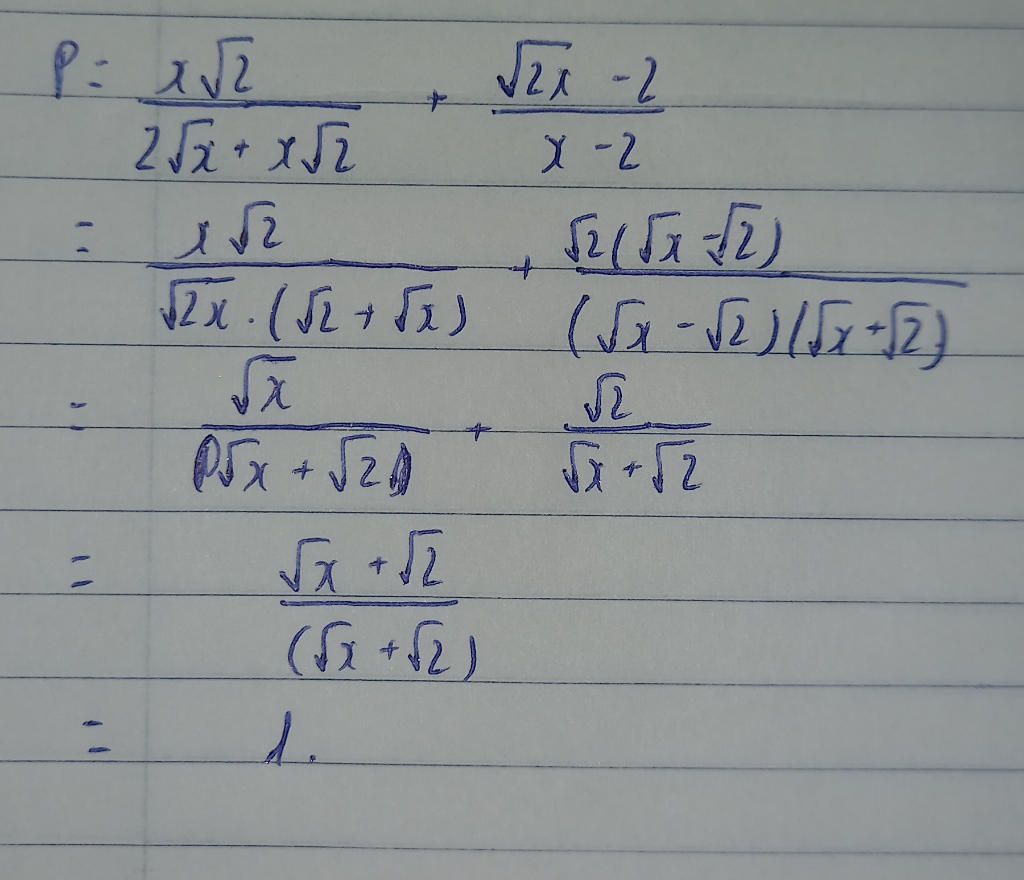 P = x√2 / (2√x + x√2) + (√2x - 2) / (x - 2)
= x√2 / (√2x . (√2 + √x)) + √2(√x - √2) / ((√x - √2)(√x + √2))
= √x / (√x + √2) + √2 / (√x + √2)
= (√x + √2) / (√x + √2)
= 1.